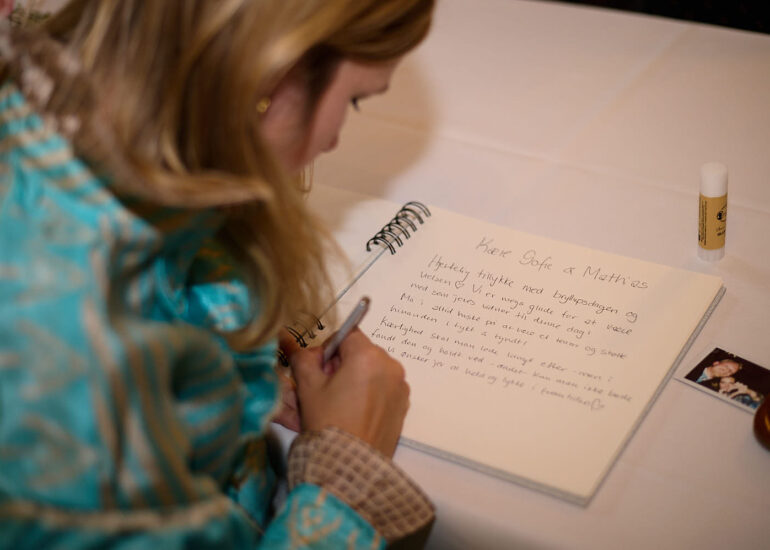 Kære Sofie & Mathias
Hjertelig tillykke med bryllupsdagen og
Vi er mega glade for at være
med som jeres venner til denne dag!
Må i altid huske på at være et team og støtte
hinanden i tykt & tyndt!
Kærlighed skal man lede længe efter - men i
fandt den og holdt ved - bedre kan man ikke
Vi ønsker jer al held og lykke i fremtiden ♡